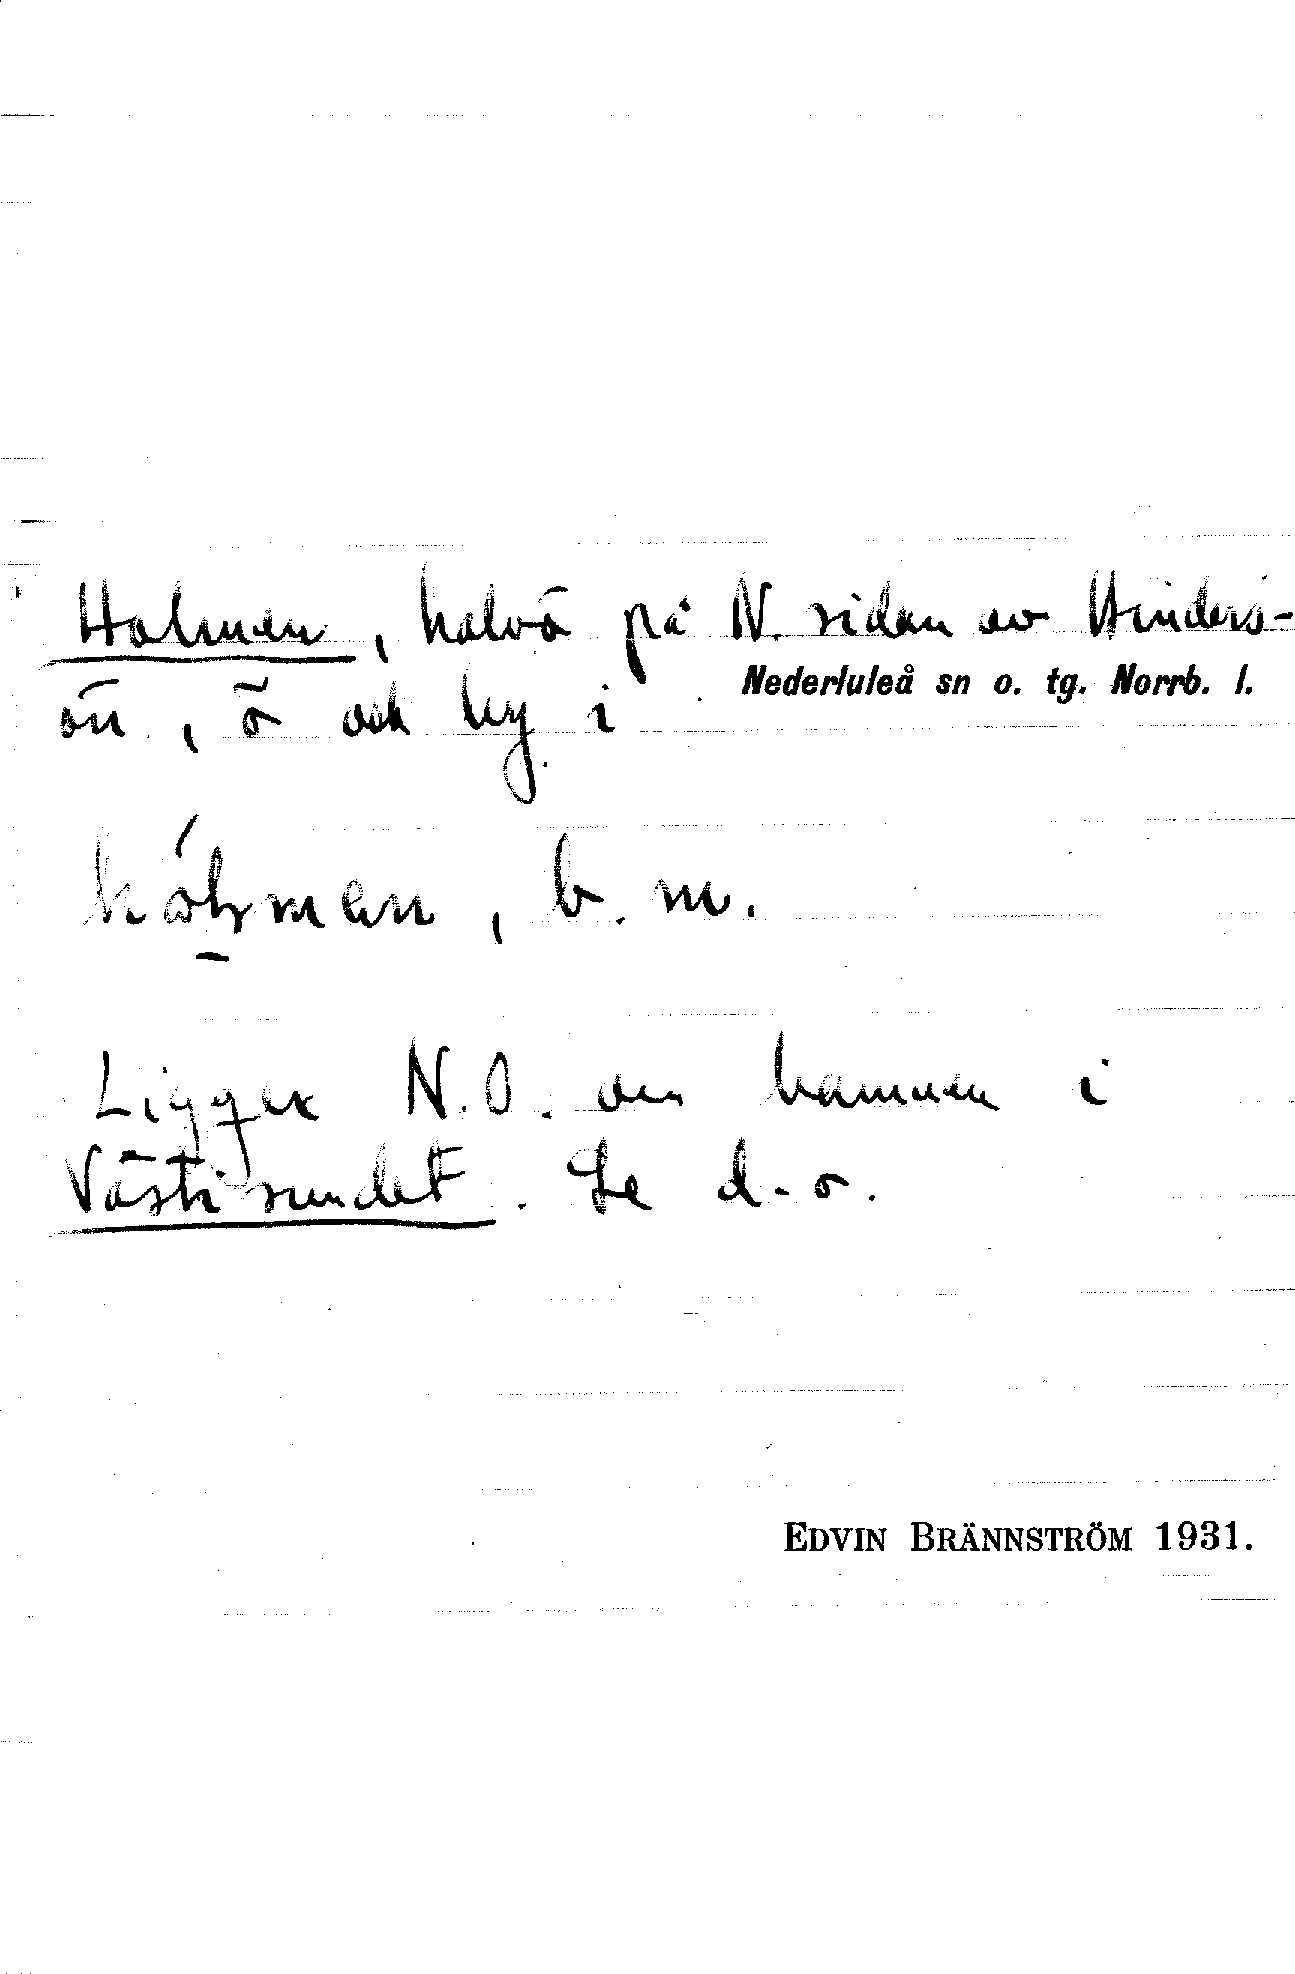 Holmen, halvö på N. sidan av Hinders-
ön, ö och by i Nederluleå sn o. tg. Norrb. l.
b. m.
Ligger N.O. om hamnen i
Västisundet. Se d. o.
EDVIN BRÄNNSTRÖM 1931.